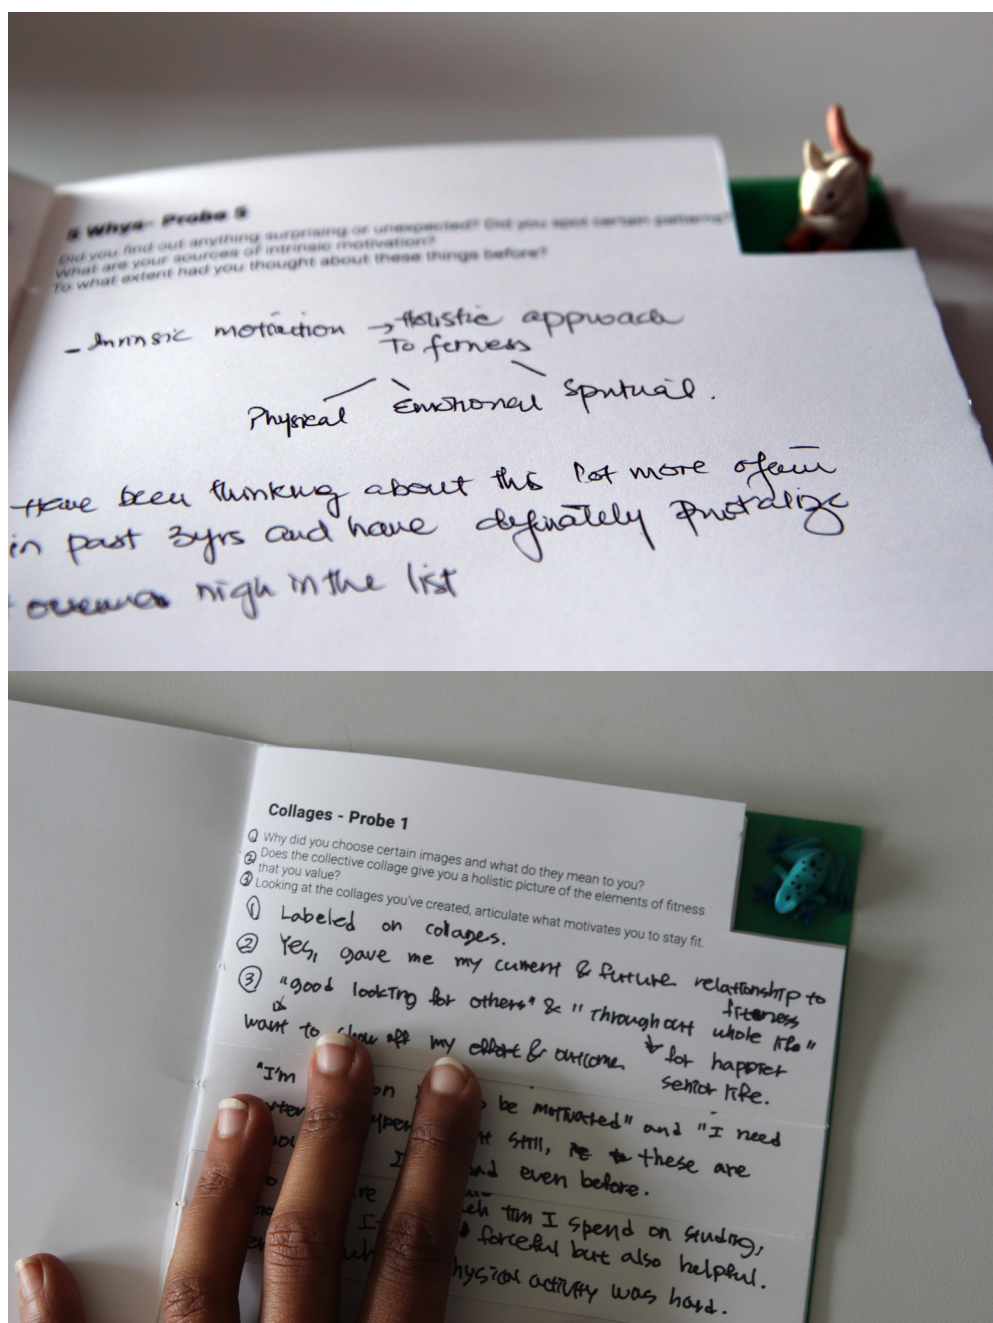 5 Whys - Probe 5
Did you find out anything surprising or unexpected? Did you spot certain patterns?
What are your sources of intrinsic motivation?
To what extent had you thought about these things before?
- Intrinsic motivation → Holistic approach
To fitness
Physical Emotional Spiritual.
Have been thinking about this lot more often
in past 3yrs and have definately
high in the list
Collages - Probe 1
① Why did you choose certain images and what do they mean to you?
② Does the collective collage give you a holistic picture of the elements of fitness
that you value?
③ Looking at the collages you've created, articulate what motivates you to stay fit.
① Labeled on collages.
② Yes, gave me my current & future relationship to
fitness
③ "good looking for others" & "throughout whole life"
want to show off my effort & outcome for happier
senior life.
"I'm on be motivated" and "I need
still, these are
I and even before.
I spend on studing,
I forceful but also helpful.
physical activity was hard.